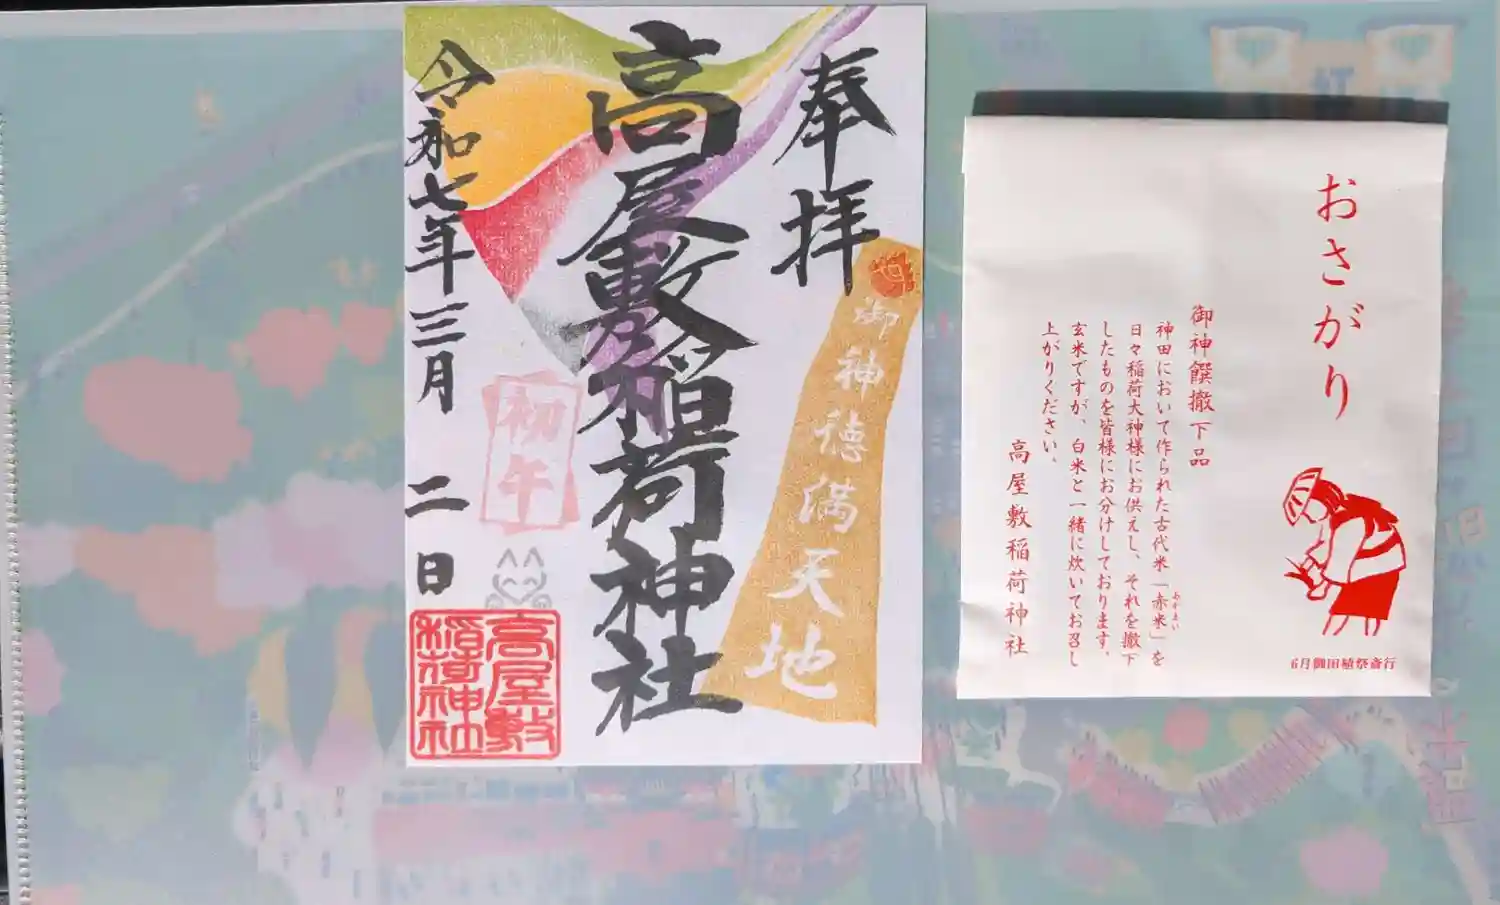 奉拝
御神徳満天地
高屋敷稲荷神社
初午
令和七年三月二日
高屋敷
稲荷神社
おさがり
御神饌撤下品
神田において作られた古代米「赤米」を
あかまい
日々稲荷大神様にお供えし、それを撤下
したものを皆様にお分けしております。
玄米ですが、白米と一緒に炊いてお召し
上がりください。
高屋敷稲荷神社
6月御田植祭斎行